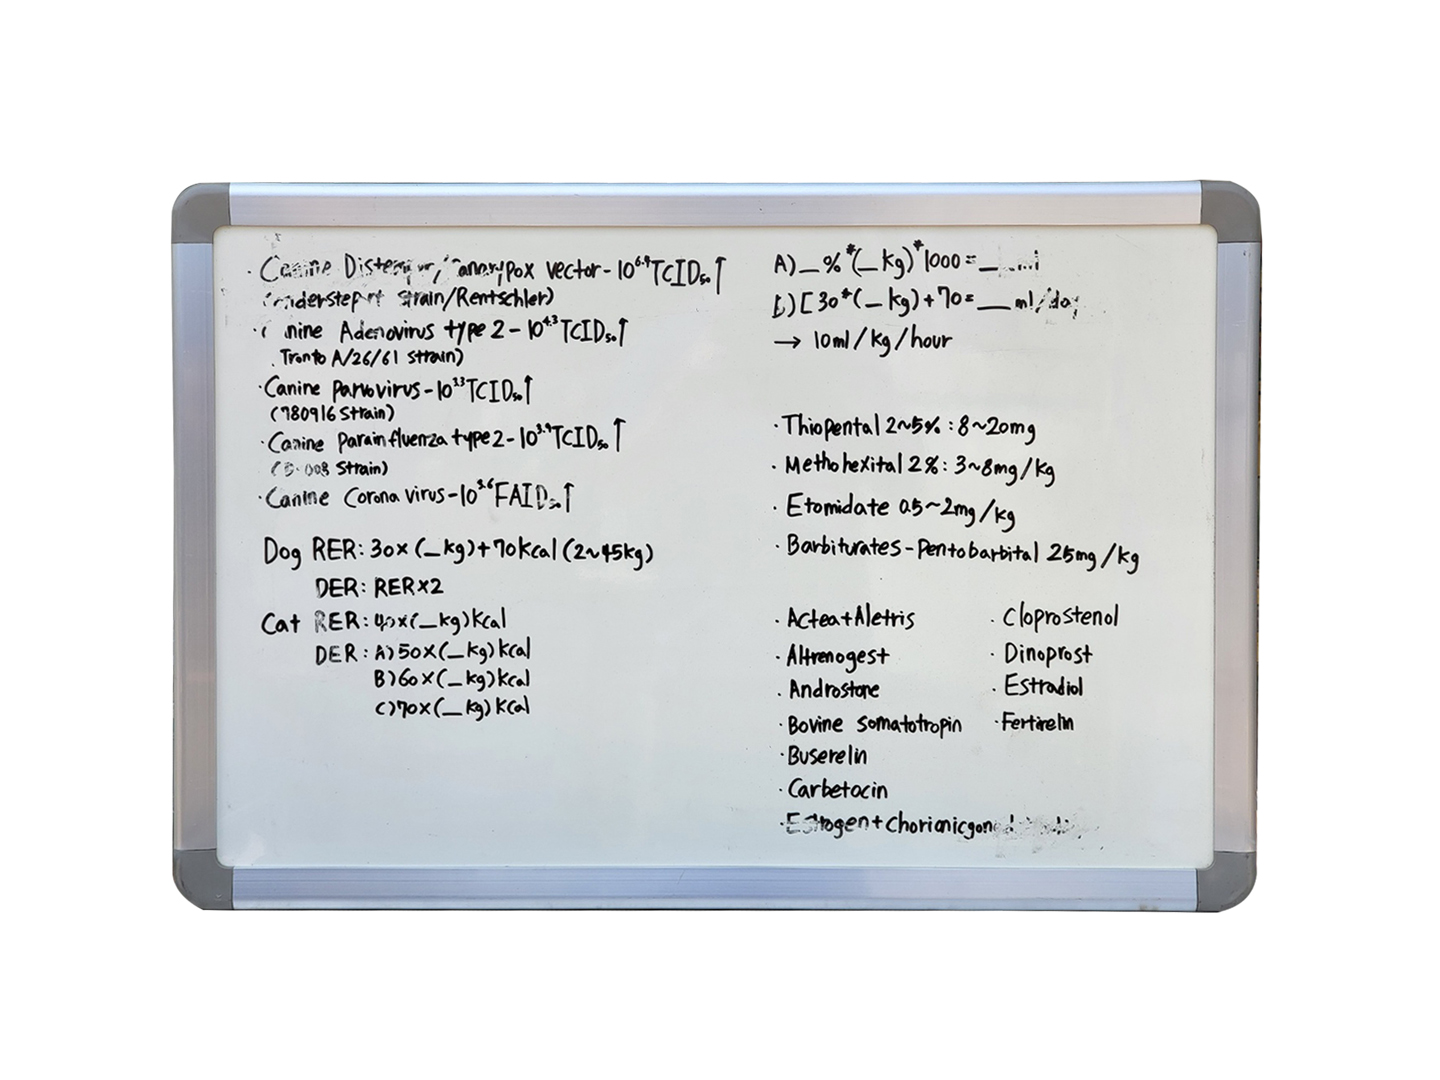 · Canine Distemper/Canarypox vector-10^6.9 TCID₅₀↑
strain/Rentschler)
Adenovirus type 2-10^4.3 TCID₅₀↑
Tronto A/26/61 strain)
· Canine parvovirus-10^3.3 TCID₅₀↑
(780916 Strain)
· Canine parainfluenza type2-10^3.9 TCID₅₀↑
Strain)
· Canine Corona virus-10^3.6 FAID₅₀↑
Dog RER: 30×(_kg)+70Kcal (2~45kg)
DER: RER×2
Cat RER: 40×(_kg)Kcal
DER: A)50×(_kg)Kcal
B)60×(_kg)Kcal
C)70×(_kg)Kcal
A)_%*(_kg)*1000=_ml
[30*(_kg)+70=__ml/day
→ 10ml/kg/hour
· Thiopental 2~5%: 8~20mg
· Methohexital 2%: 3~8mg/kg
· Etomidate 0.5~2mg/kg
· Barbiturates-pentobarbital 25mg/kg
· Actea+Aletris
· Altrenogest
· Androstone
· Bovine somatotropin
· Buserelin
· Carbetocin
· Estrogen+
· Cloprostenol
· Dinoprost
· Estradiol
· Fertirelin